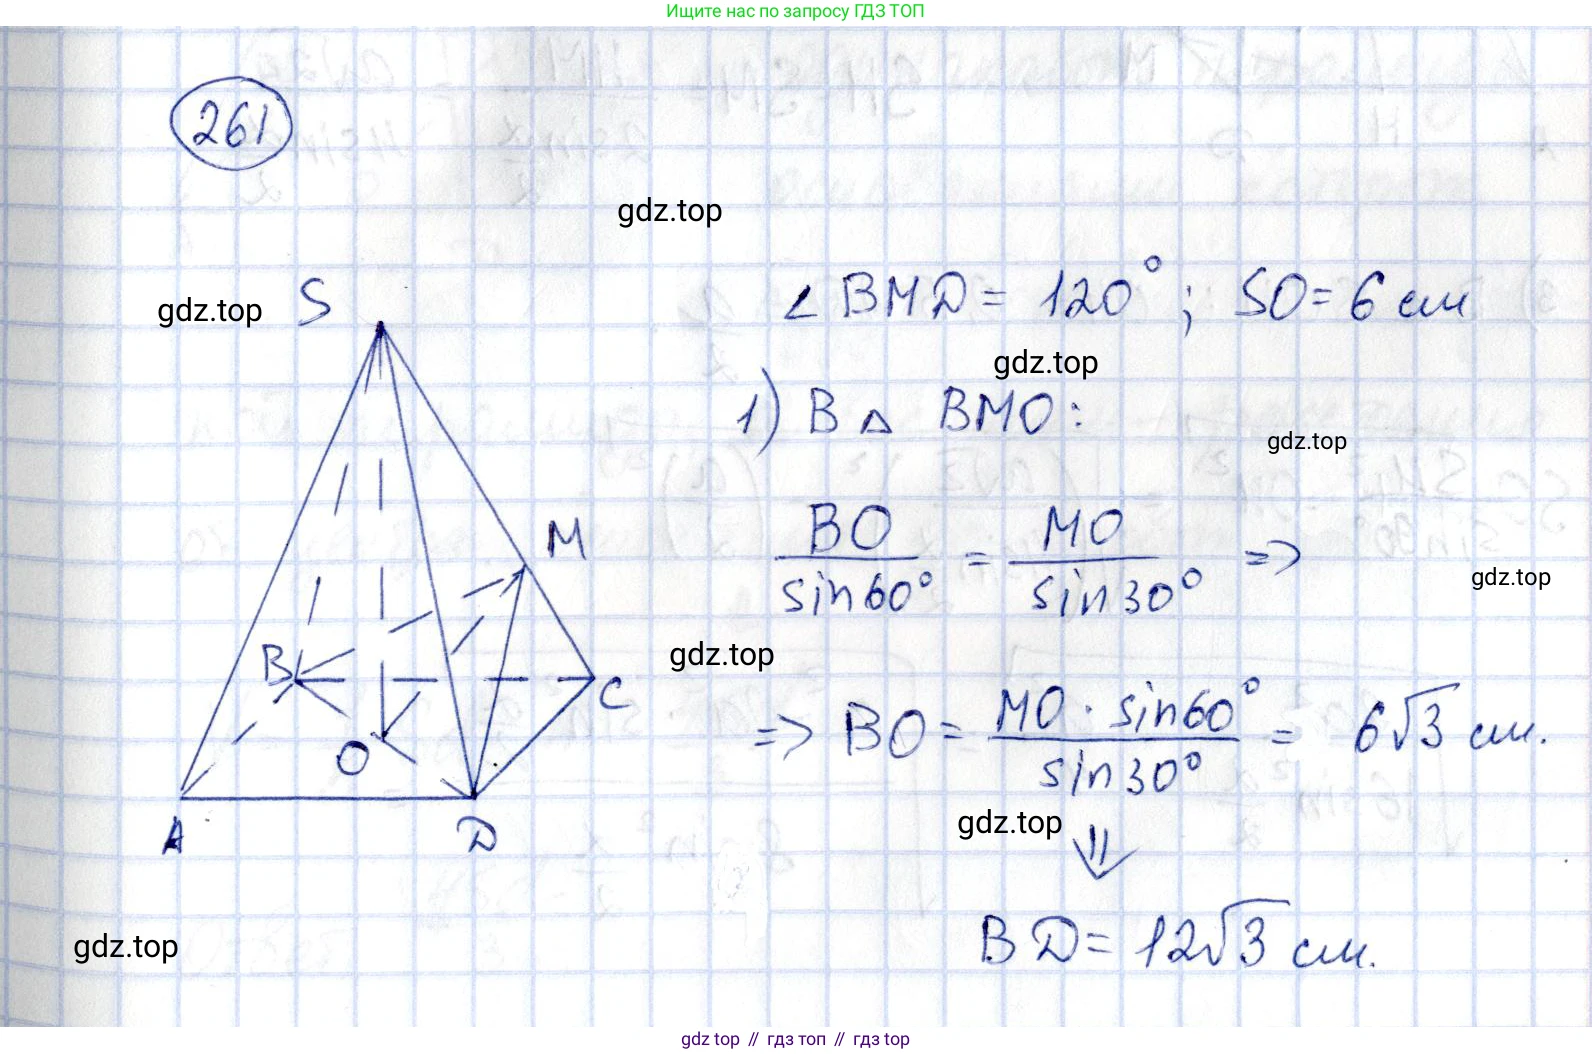 Ищите нас по запросу ГДЗ ТОП
261
gdz.top
gdz.top
S
∠ BMD = 120° ; SO = 6 см
gdz.top
1) В △ BMO:
gdz.top
BO / sin60° = MO / sin30° =>
gdz.top
M
B
C
O
A
D
gdz.top
=> BO = MO · sin60° / sin30° = 6√3 см.
gdz.top
⇓
BD = 12√3 см.
gdz.top
gdz top // гдз топ // гдз top